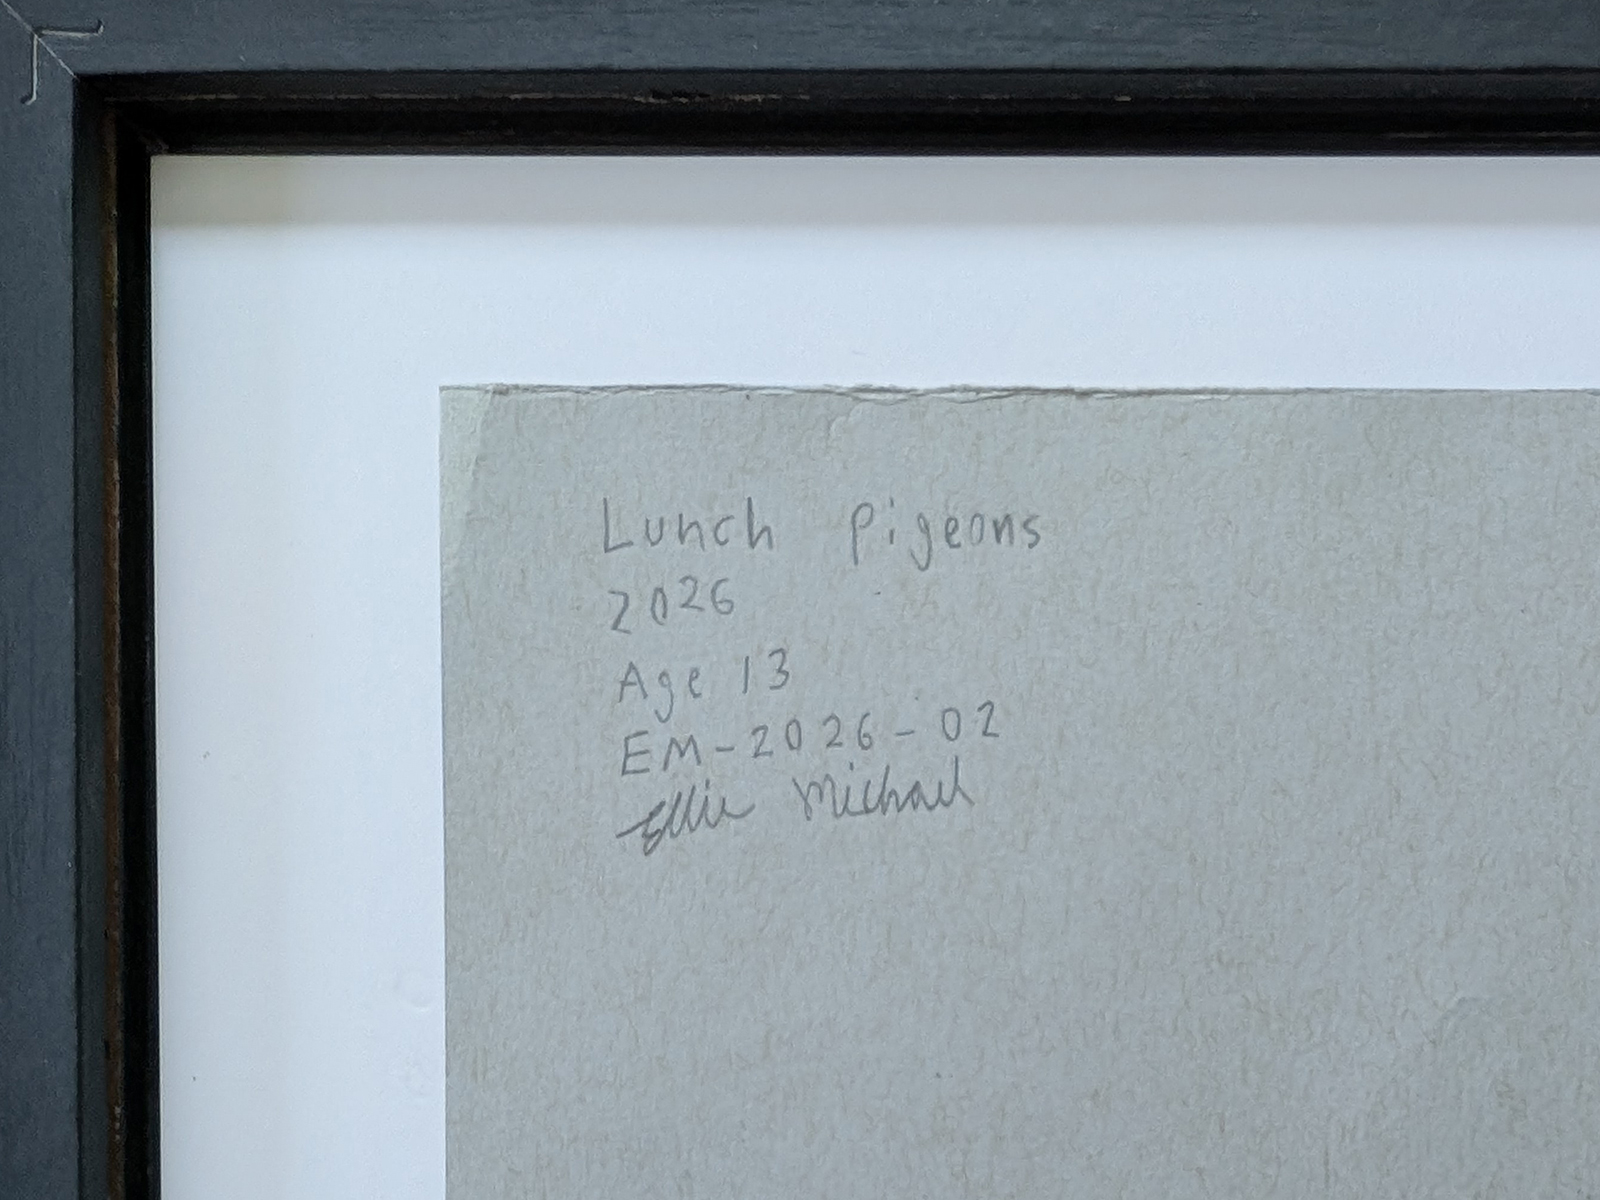 Lunch Pigeons
2026
Age 13
EM-2026-02
Ellie Michael